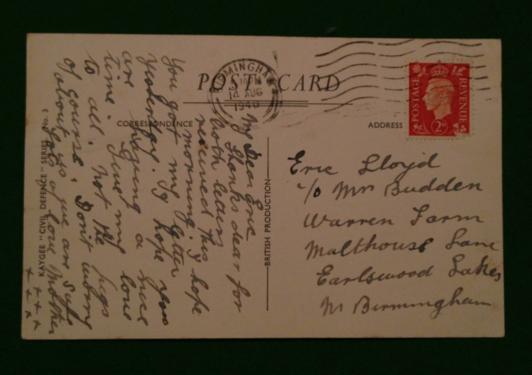 POST CARD
BIRMINGHAM
14 AUG
1940
POSTAGE REVENUE
2D
CORRESPONDENCE
ADDRESS
My Dear Eric
Thanks dear for
both letters
received this
morning. I hope
you got my letter
yesterday. I hope you
are having a nice
time. Give my love
to all. Not the pigs
of course. Don't worry
about us we are safe
Lots of love Mother
x x x x
BRITISH PRODUCTION
Eric Lloyd
c/o Mr Budden
Warren Farm
Malthouse Lane
Earlswood Lakes
Nr Birmingham